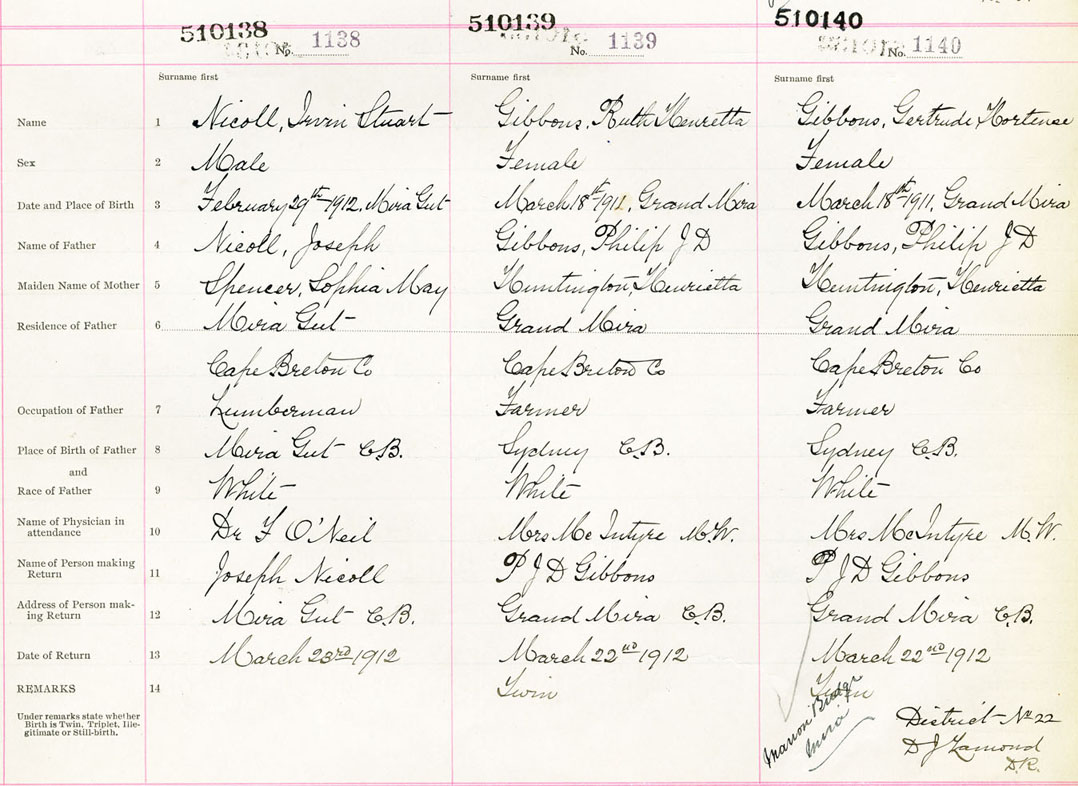 510138 510139 510140
No. 1138 No. 1139 No. 1140
Surname first Surname first Surname first
Name 1 Nicoll, Irvin Stuart Gibbons, Ruth Henretta Gibbons, Gertrude Hortense
Sex 2 Male Female Female
Date and Place of Birth 3 February 29th 1912, Mira Gut March 18th 1911, Grand Mira March 18th 1911, Grand Mira
Name of Father 4 Nicoll, Joseph Gibbons, Philip J D Gibbons, Philip J D
Maiden Name of Mother 5 Spencer, Sophia May Huntington, Henrietta Huntington, Henrietta
Residence of Father 6 Mira Gut Grand Mira Grand Mira
Cape Breton Co Cape Breton Co Cape Breton Co
Occupation of Father 7 Lumberman Farmer Farmer
Place of Birth of Father 8 Mira Gut C.B. Sydney C.B. Sydney C.B.
and
Race of Father 9 White White White
Name of Physician in
attendance 10 Dr F O'Neil Mrs McIntyre M.W. Mrs McIntyre M.W.
Name of Person making
Return 11 Joseph Nicoll P J D Gibbons P J D Gibbons
Address of Person mak-
ing Return 12 Mira Gut C.B. Grand Mira C.B. Grand Mira C.B.
Date of Return 13 March 23rd 1912 March 22nd 1912 March 22nd 1912
REMARKS 14 Twin Twin
Under remarks state whether
Birth is Twin, Triplet, Ille-
gitimate or Still-birth.
Marion Bridge
Mira
District No 22
D J Lamond
D.R.